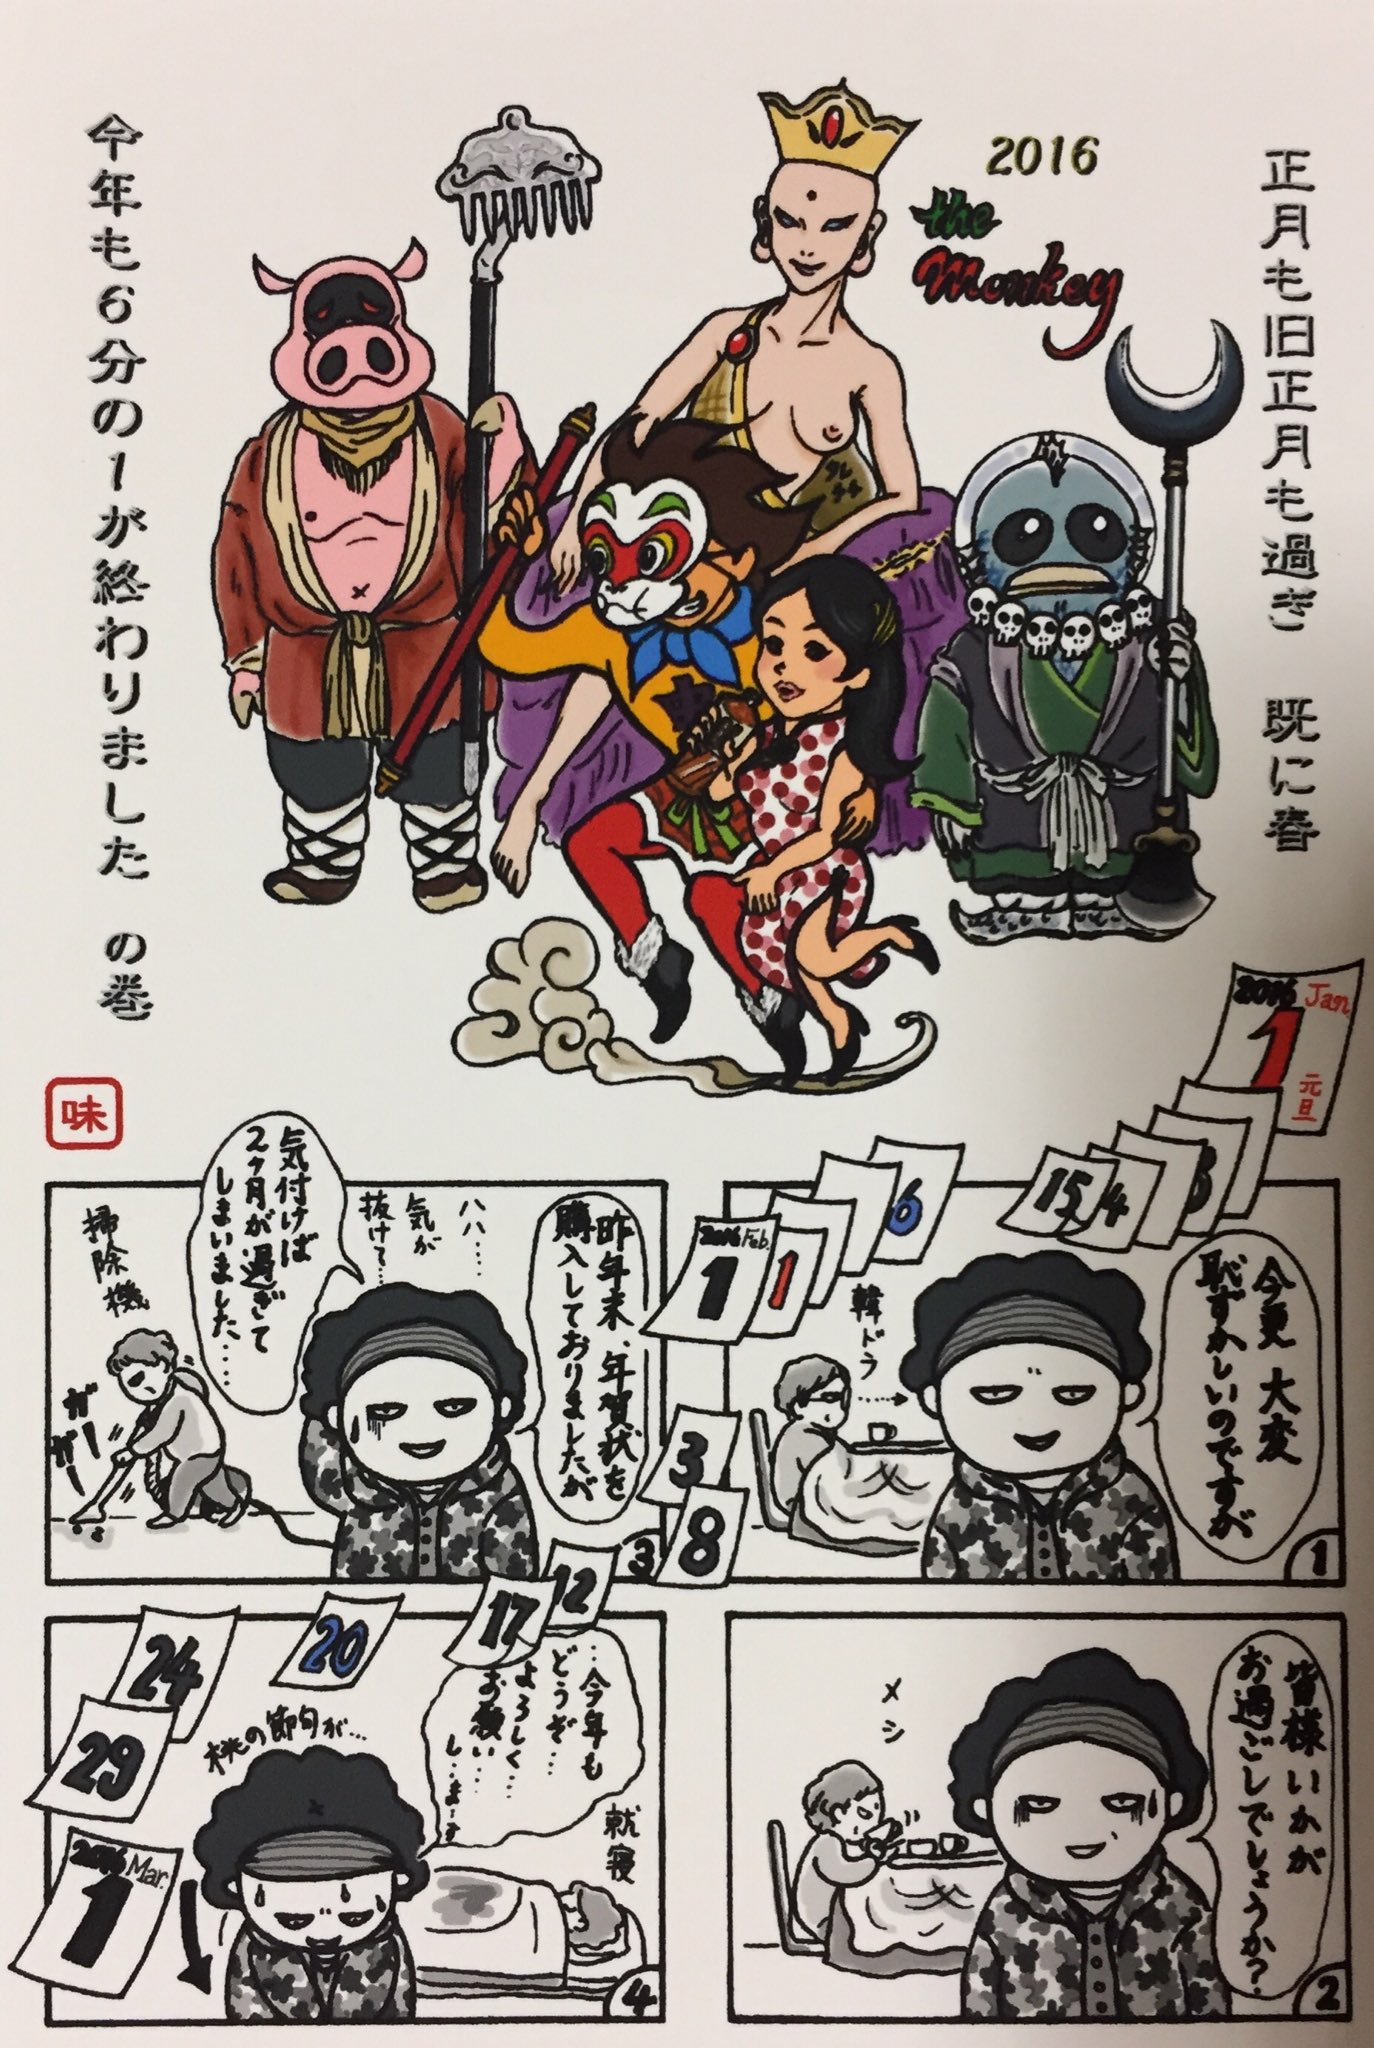 2016
the
Monkey
正月も旧正月も過ぎ 既に春
今年も6分の1が終わりました の巻
味
2016 Jan
1
元旦
15
今更 大変
恥ずかしいのですが
韓ドラ
父
1
皆様いかが
お過ごしでしょうか?
メシ
父
2
6
1
2016 Feb.
1
3
8
昨年末、年賀状を
購入しておりましたが
ハハ…
気が
抜けて…
気付けば
2ヶ月が過ぎて
しまいました……
掃除機
ガー
ガー
3
12
17
20
24
29
2016 Mar.
1
…今年も
どうぞ…
よろしく…
お願い…
し…ま…す
桃の節句が…
就寝
4